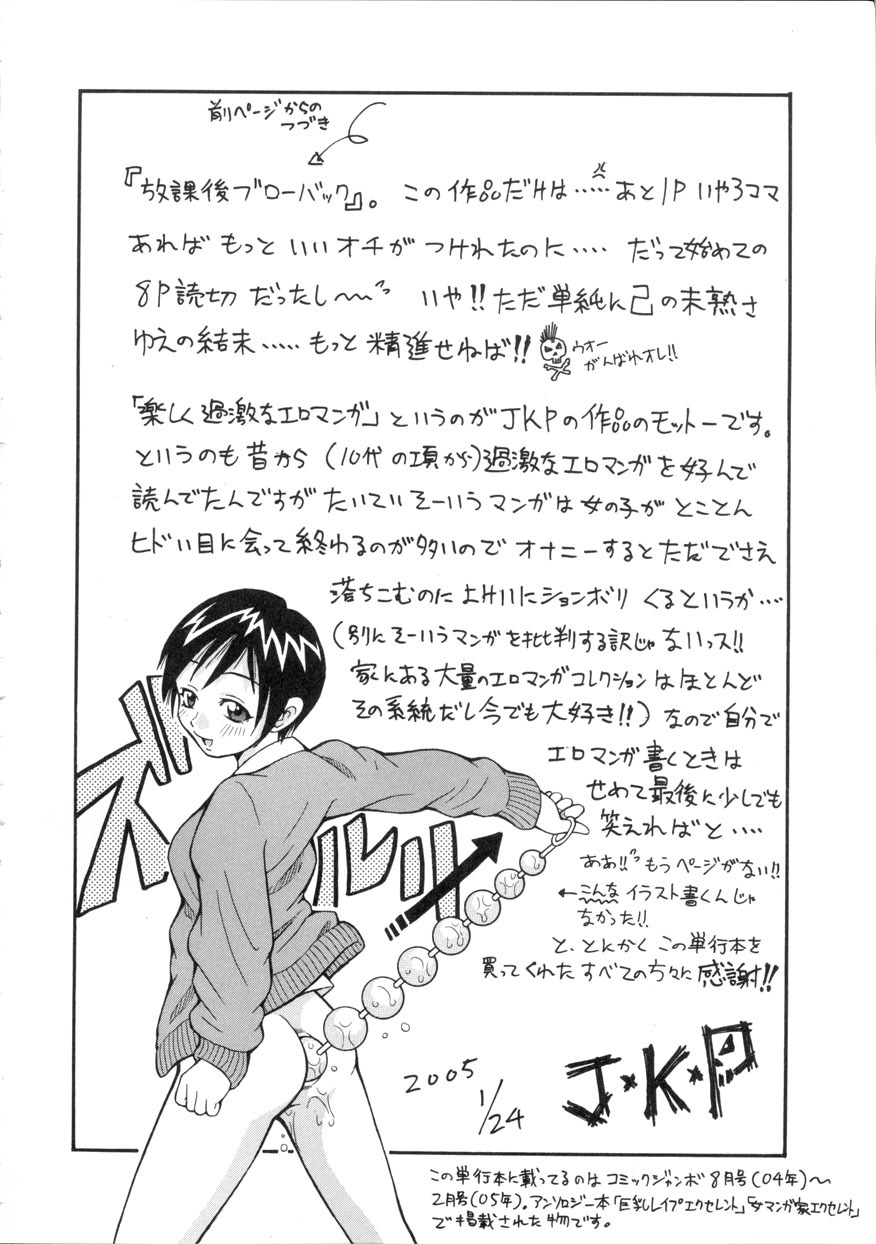 前ページからの
つづき
『放課後ブローバック』。この作品だけは……あと1Pいや3コマ
あればもっといいオチがつけれたのに…… だって始めての
8P読切だったし〜〜 いや!!ただ単純に己の未熟さ
ゆえの結末……もっと精進せねば!!
ウオー
がんばれオレ!!
「楽しく過激なエロマンガ」というのがJKPの作品のモットーです。
というのも昔から(10代の項から)過激なエロマンガを好んで
読んでたんですがたいていそーいうマンガは女の子がとことん
ヒドい目に会って終わるのが多いのでオナニーするとただでさえ
落ちこむのによけいにションボリくるというか…
(別にそーいうマンガを批判する訳じゃないっス!!
家にある大量のエロマンガコレクションはほとんど
その系統だし今でも大好き!!)なので自分で
エロマンガ書くときは
せめて最後に少しでも
笑えればと……
ああ!!もうページがない!!
←こんなイラスト書くんじゃ
なかった!!
と、とにかくこの単行本を
買ってくれたすべての方々に感謝!!
ズルルリ
2005
1/24
J・K・P
この単行本に載ってるのはコミックジャンボ8月号(04年)〜
2月号(05年)。アンソロジー本「巨乳レイプエクセレント」「女マンガ家エクセレント」
で掲載された物です。